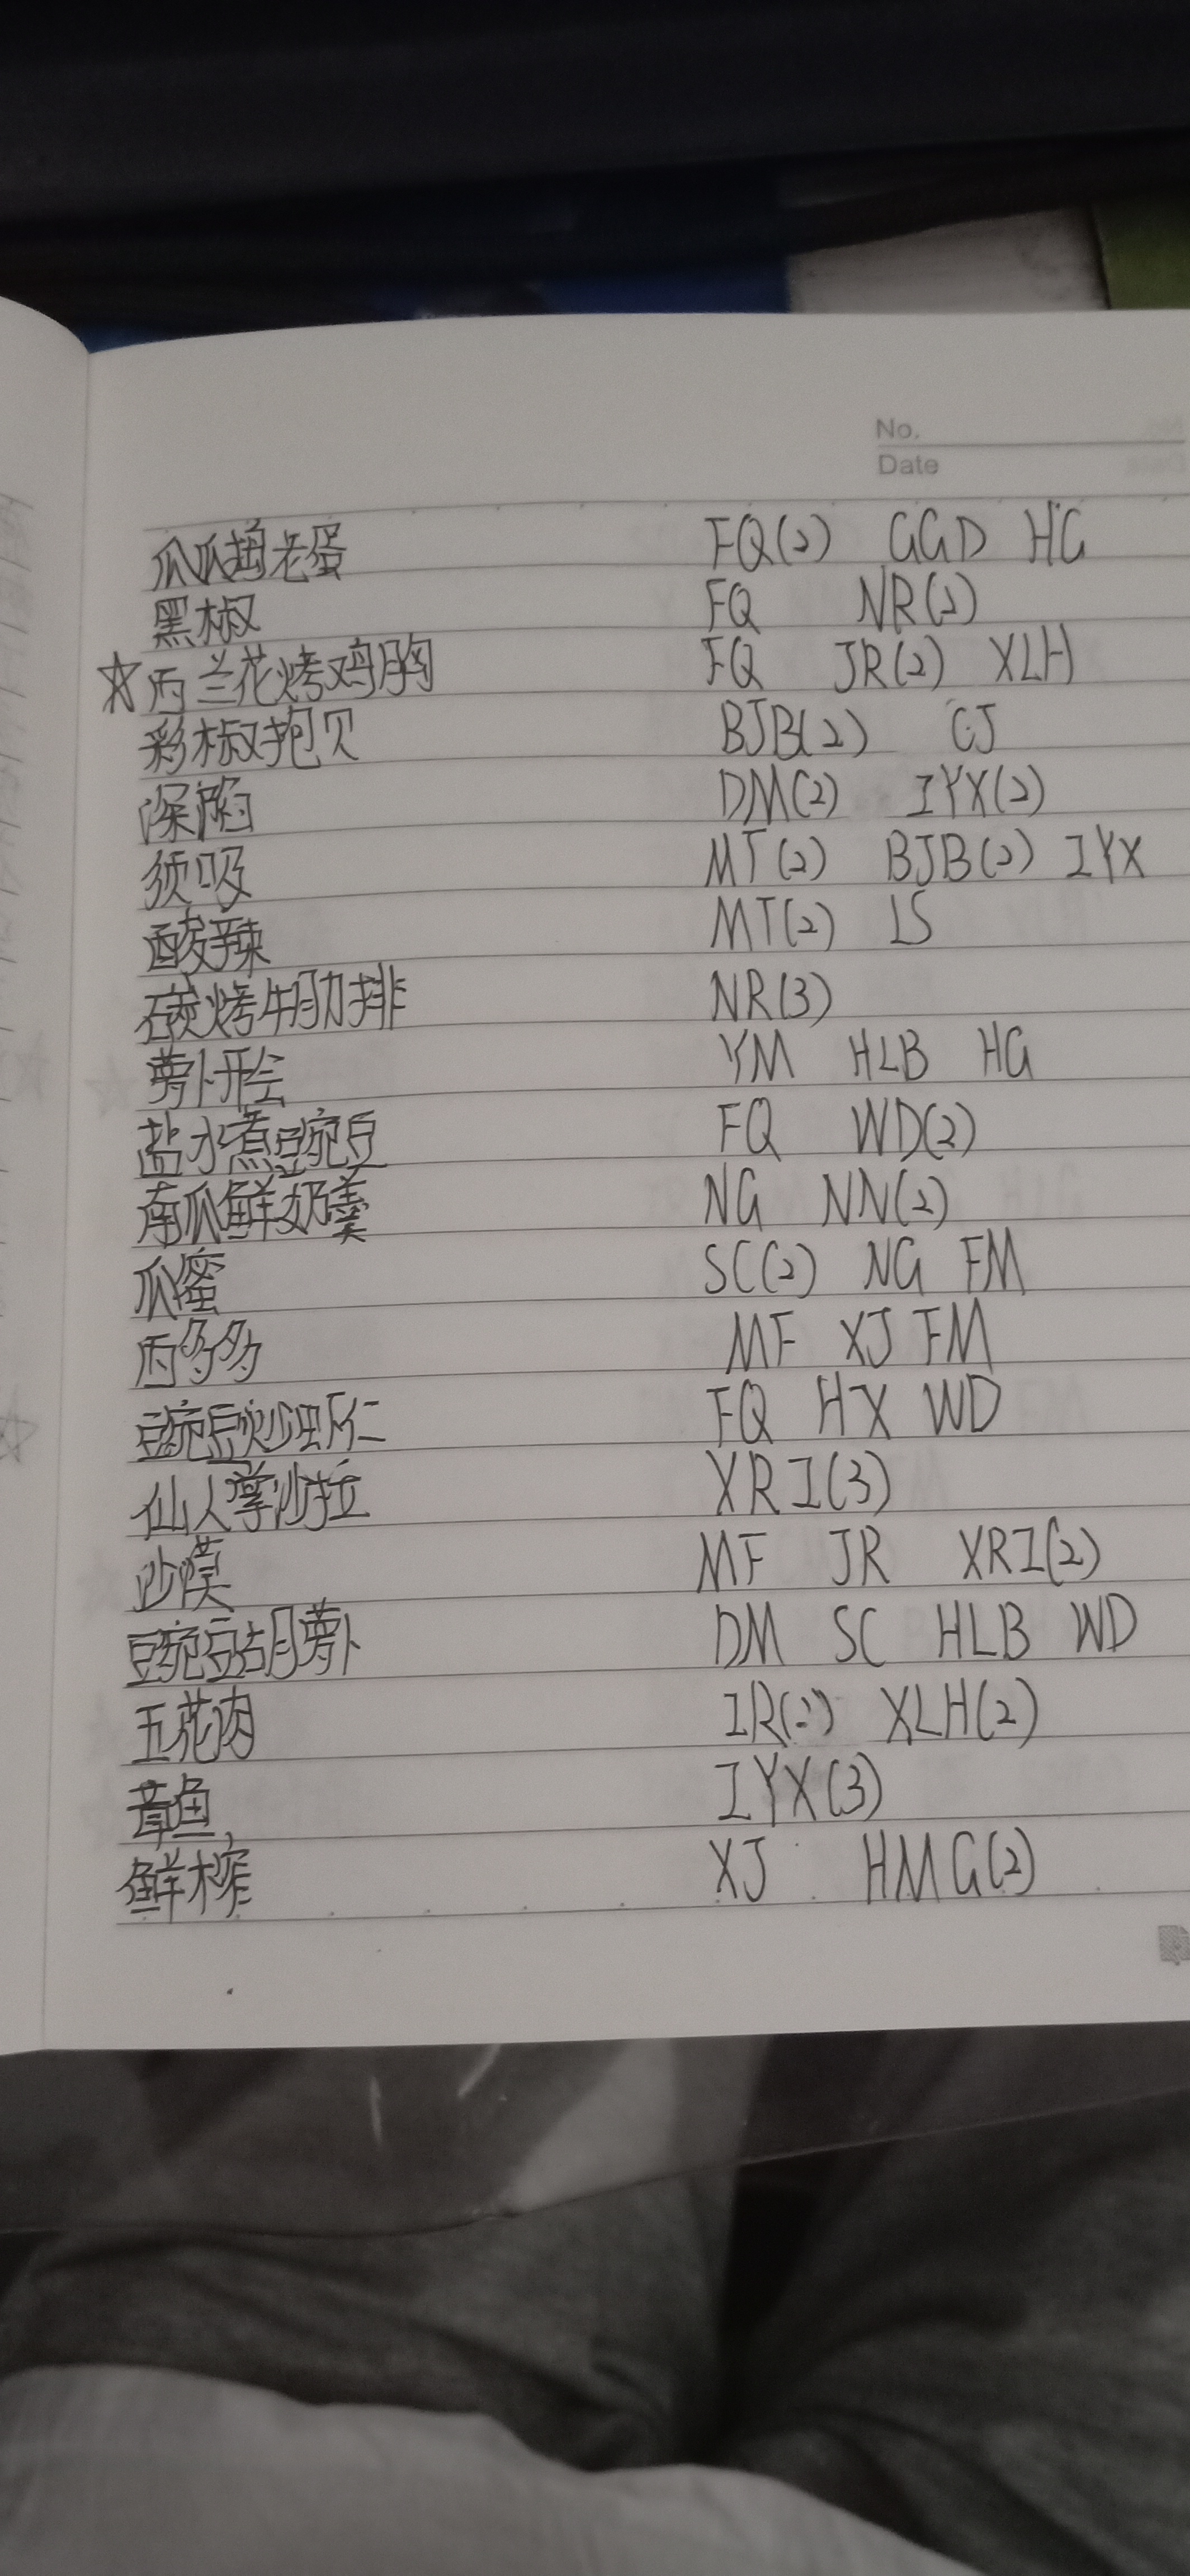 No.
Date
瓜瓜捣老蛋 FQ(2) GGD HG
黑椒 FQ NR(2)
☆西兰花烤鸡胸 FQ JR(2) XLH
彩椒抱贝 BJB(2) CJ
深陷 DM(2) ZYX(2)
须吸 MT(2) BJB(2) ZYX
酸辣 MT(2) LS
碳烤牛肋排 NR(3)
萝卜开会 YM HLB HG
盐水煮豌豆 FQ WD(2)
南瓜鲜奶羹 NG NN(2)
瓜蜜 SC(2) NG FM
西多多 MF XJ FM
豌豆炒虾仁 FQ HX WD
仙人掌沙拉 XRZ(3)
沙漠 MF JR XRZ(2)
豌豆胡萝卜 DM SC HLB WD
五花肉 ZR(2) XLH(2)
章鱼 ZYX(3)
鲜榨 XJ HMG(2)